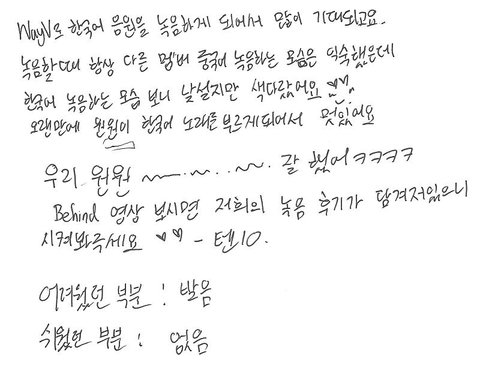 WayV로 한국어 음원을 녹음하게 되어서 많이 기대되고요.
녹음할 때 항상 다른 멤버 중국어 녹음하는 모습은 익숙했은데
한국어 녹음하는 모습 보니 낯설지만 색다랐어요 ♡♡
오랜만에 윈윈이 한국어 노래를 부르게되어서 멋있어요
우리 윈윈 ~~~·~..~~. 잘 했어 ㅋㅋㅋㅋ
Behind 영상 보시면 저희의 녹음 후기가 담겨저있으니
시켜봐주세요 ♡♡ - 텐10.
어려웠던 부분 : 발음
쉬웠던 부분 : 없음